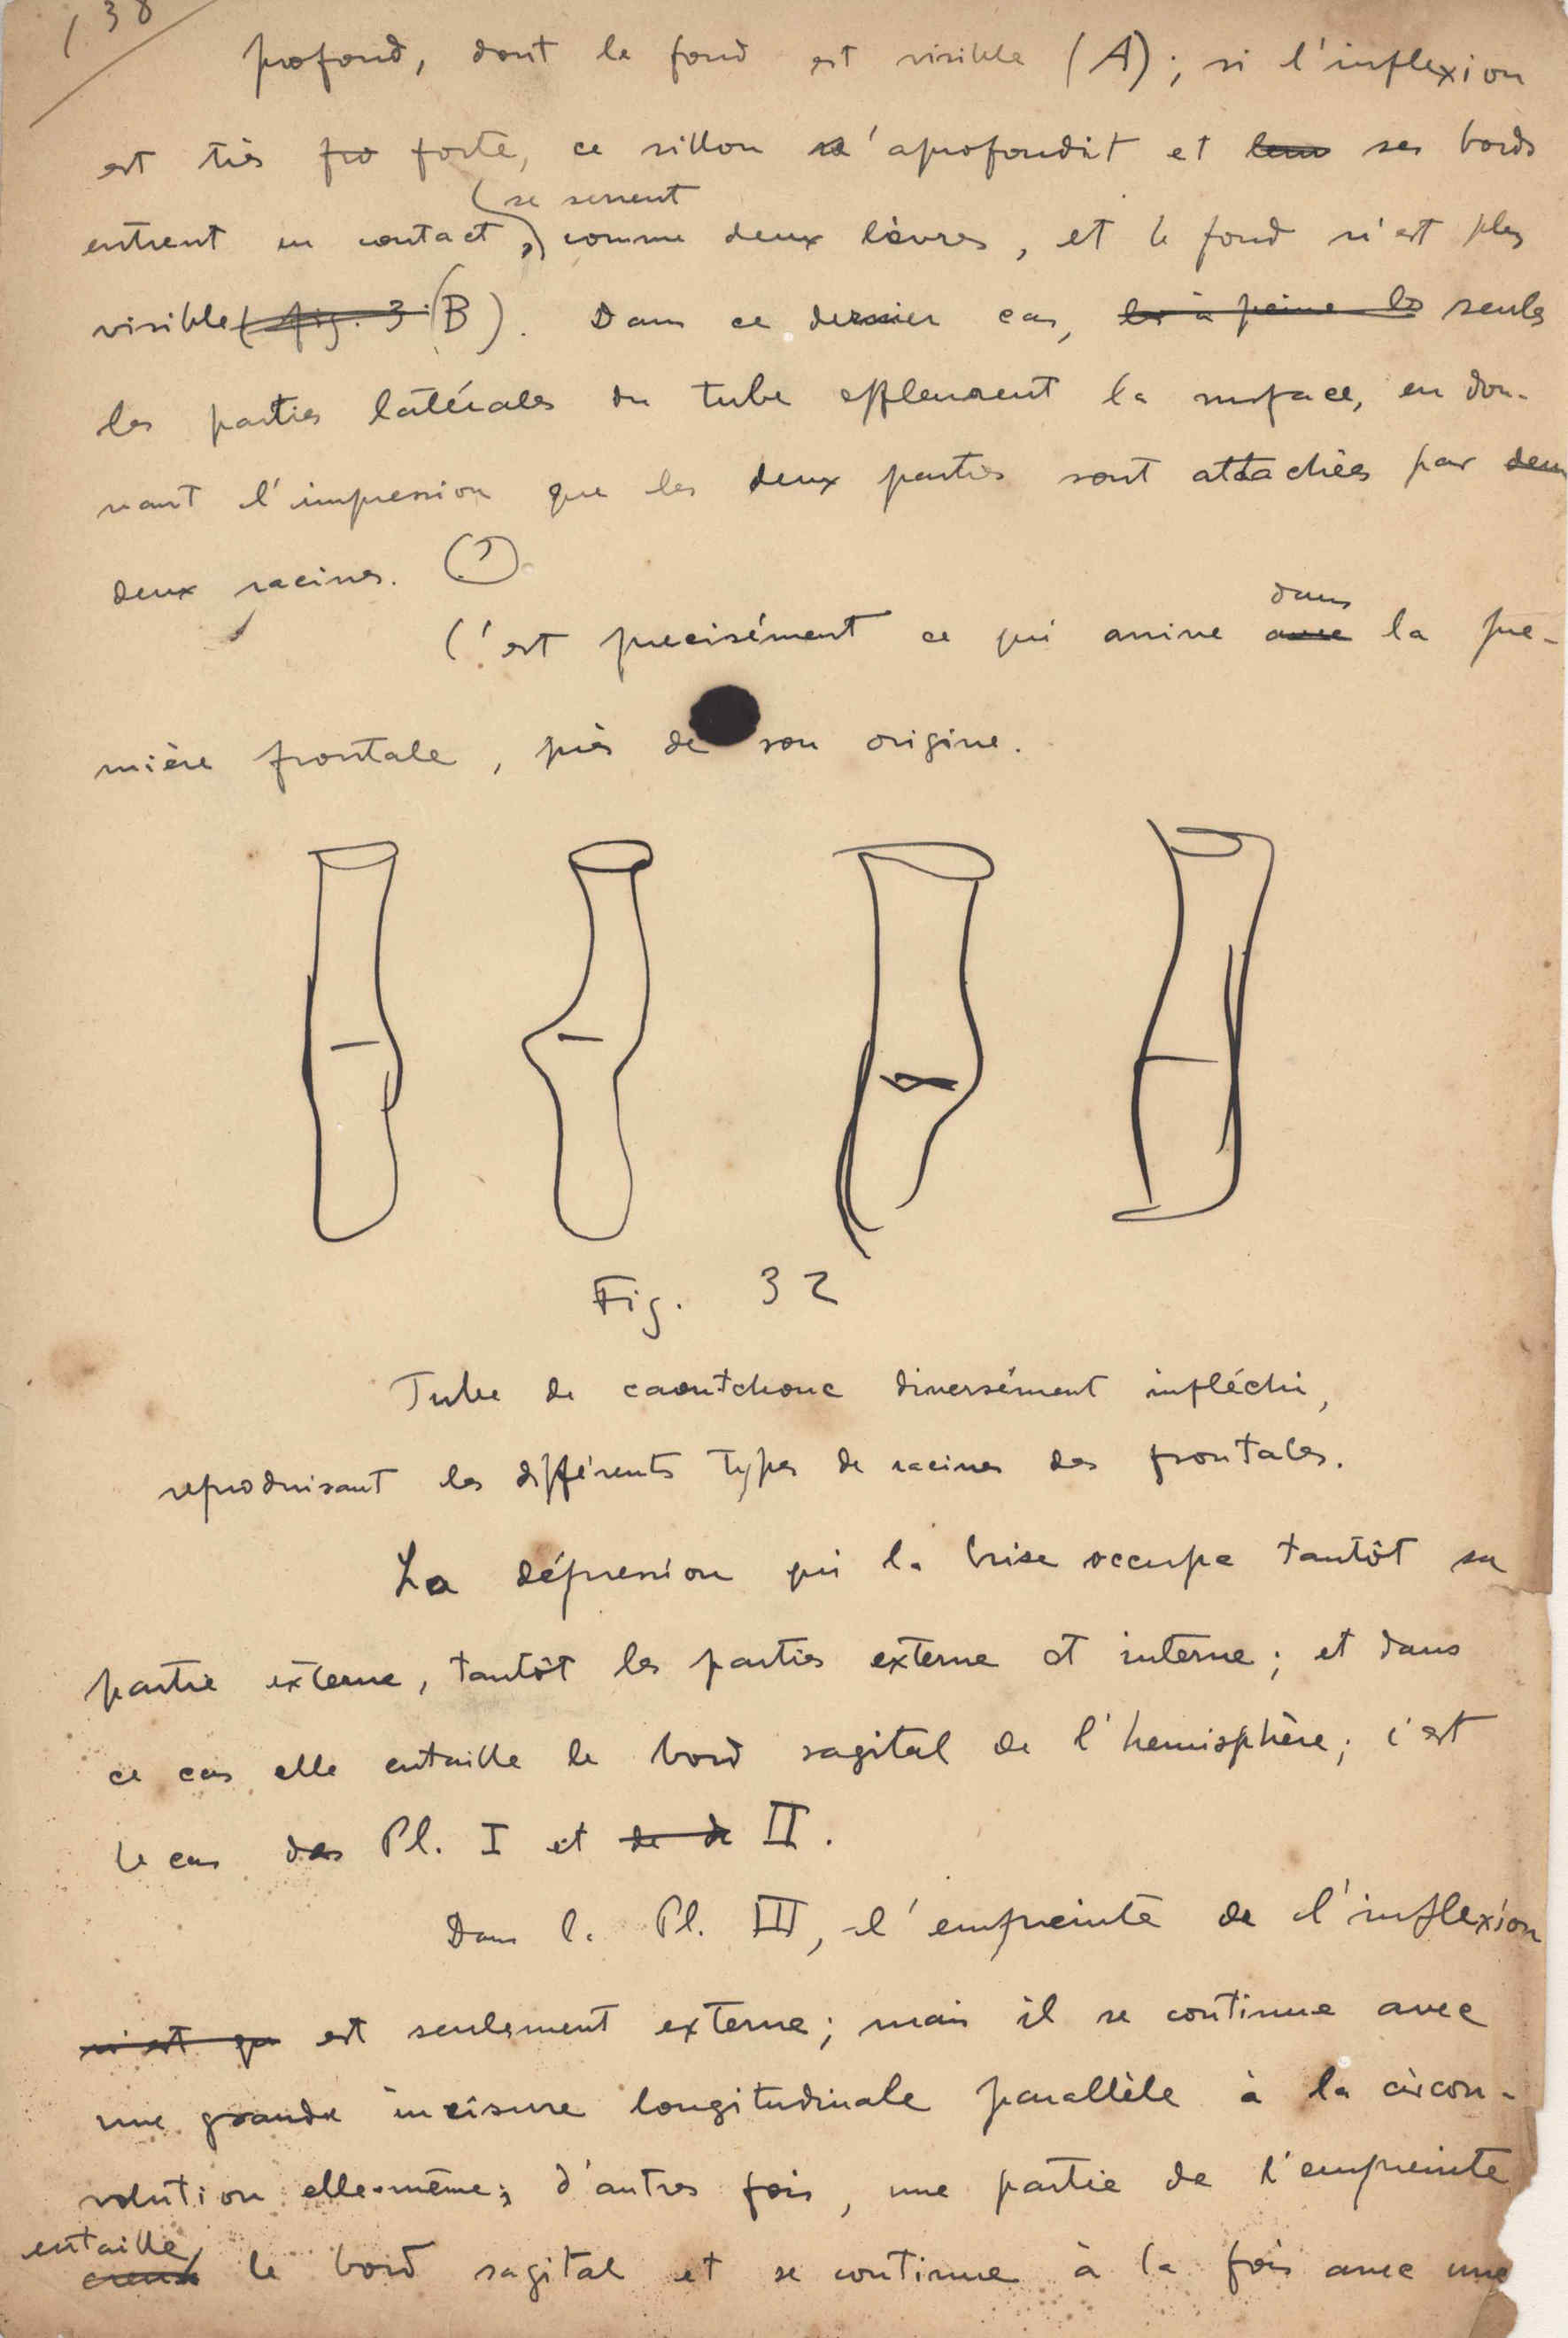 138
profond, dont le fond est visible (A); si l'inflexion
est très fro forte, ce sillon s'aprofondit et leur ses bords
se serrent
entrent en contact, comme deux lèvres, et le fond n'est plus
visible (fig. 3. (B). Dans ce dernier cas, les à peine les seuls
les parties latérales du tube effleurent la surface, en don-
nant l'impression que les deux parties sont attachées par deux
deux racines. (?)
dans
C'est precisément ce qui arrive avec la pre-
mière frontale, près de son origine.
Fig. 32
Tube de caoutchouc diversément infléchi,
reproduisant les différents types de racines des frontales.
La dépression qui la brise occupe tantôt sa
partie externe, tantôt les parties externe et interne; et dans
ce cas elle entaille le bord sagital de l'hemisphère; c'est
le cas des Pl. I et de de II.
Dans la Pl. III, l'empreinte de l'inflexion
n'est que est seulement externe; mais il se continue avec
une grande incisure longitudinale parallèle à la circon-
volution elle-même; d'autres fois, une partie de l'empreinte
entaille
creux le bord sagital et se continue à la fois avec une